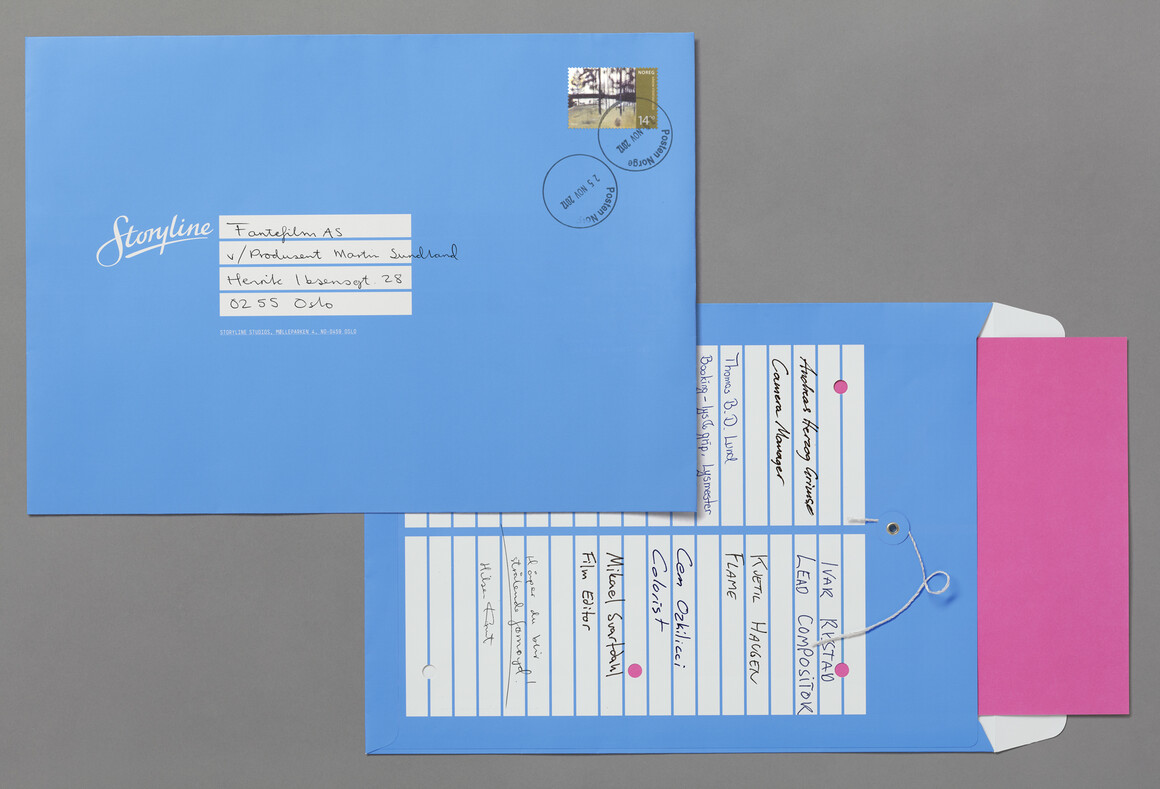 NOREG
14
Posten Norge
NOV 2012
25 NOV 2012
Posten No
Storyline
Fantefilm AS
v/Produsent Martin Sundland
Henrik Ibsensgt. 28
0255 Oslo
STORYLINE STUDIOS, MØLLEPARKEN 4, NO-0459 OSLO
Andreas Herzog Grimsø
Camera Manager
Thomas B. D. Lund
Booking - lys & grip, Lysmester
IVAR RYSTAD
LEAD COMPOSITOR
KJETIL HAUGEN
FLAME
Cem Ozkilicci
Colorist
Mikael Svartdahl
Film Editor
Håper du blir
strålende fornøyd!
Hilsen Knut